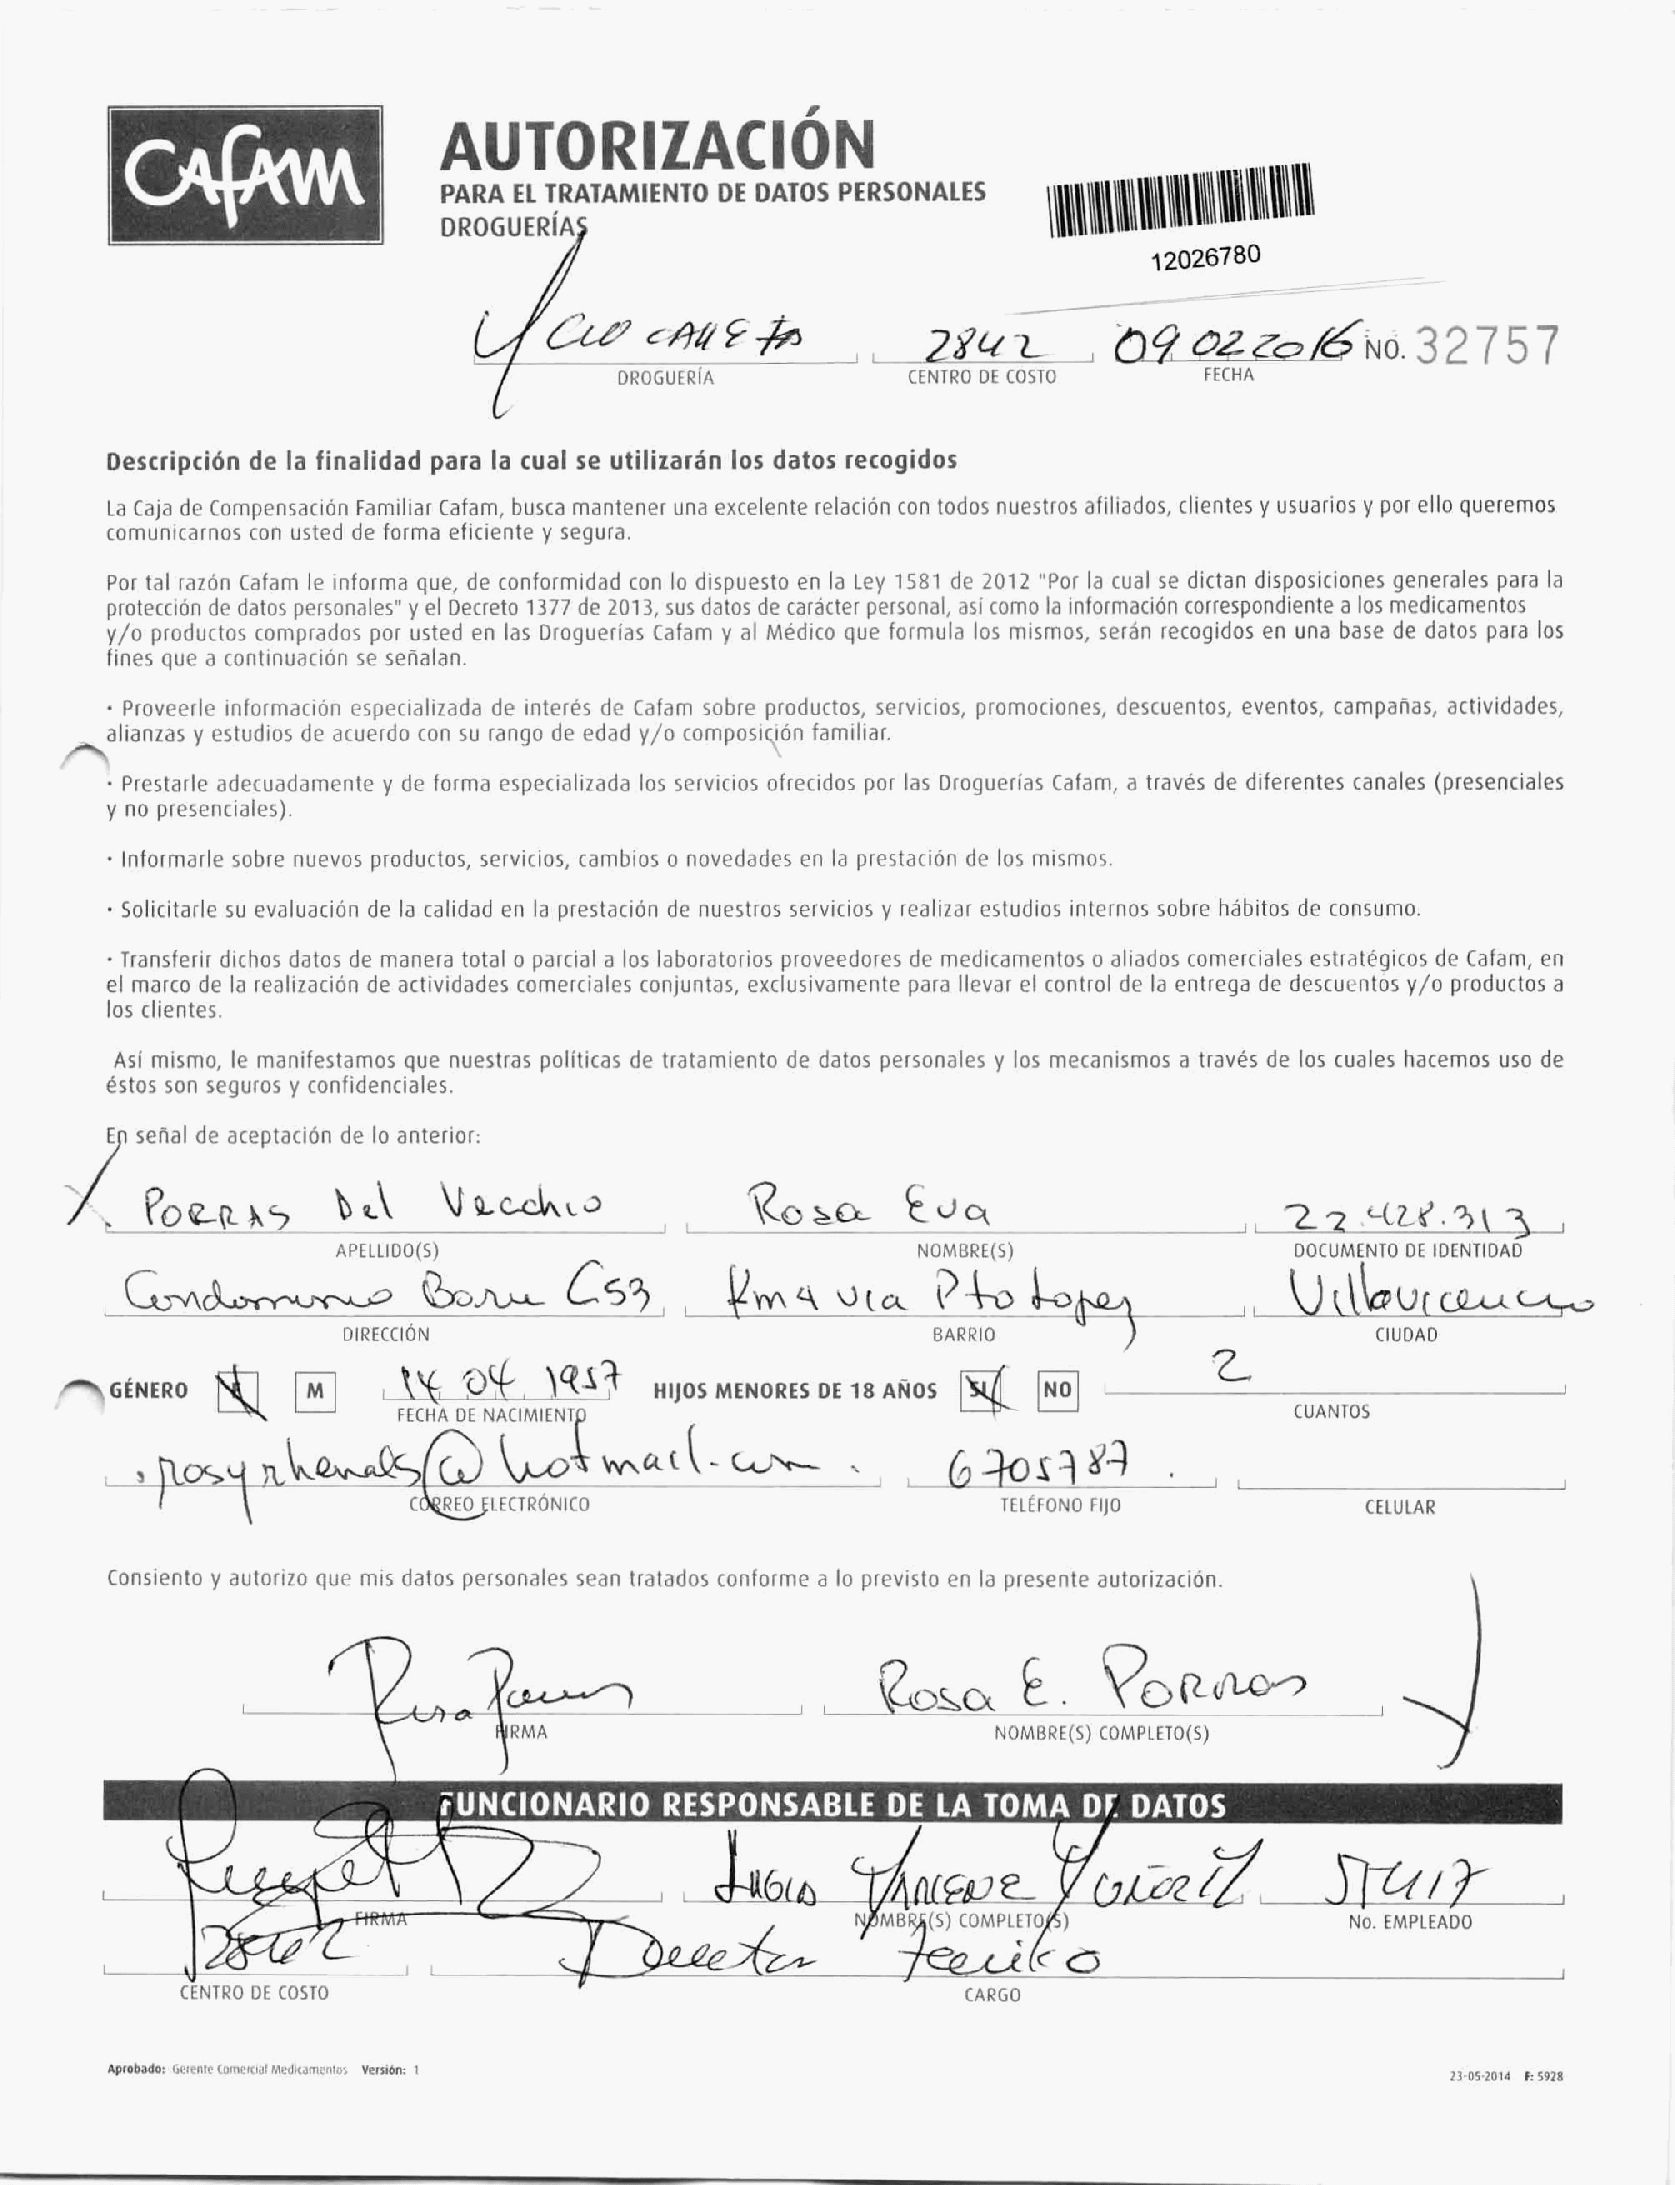 CAFAM
AUTORIZACIÓN
PARA EL TRATAMIENTO DE DATOS PERSONALES
DROGUERÍAS
12026780
2842 09 02 2016 NO. 32757
DROGUERÍA CENTRO DE COSTO FECHA
Descripción de la finalidad para la cual se utilizarán los datos recogidos
La Caja de Compensación Familiar Cafam, busca mantener una excelente relación con todos nuestros afiliados, clientes y usuarios y por ello queremos
comunicarnos con usted de forma eficiente y segura.
Por tal razón Cafam le informa que, de conformidad con lo dispuesto en la Ley 1581 de 2012 "Por la cual se dictan disposiciones generales para la
protección de datos personales" y el Decreto 1377 de 2013, sus datos de carácter personal, así como la información correspondiente a los medicamentos
y/o productos comprados por usted en las Droguerías Cafam y al Médico que formula los mismos, serán recogidos en una base de datos para los
fines que a continuación se señalan.
· Proveerle información especializada de interés de Cafam sobre productos, servicios, promociones, descuentos, eventos, campañas, actividades,
alianzas y estudios de acuerdo con su rango de edad y/o composición familiar.
· Prestarle adecuadamente y de forma especializada los servicios ofrecidos por las Droguerías Cafam, a través de diferentes canales (presenciales
y no presenciales).
· Informarle sobre nuevos productos, servicios, cambios o novedades en la prestación de los mismos.
· Solicitarle su evaluación de la calidad en la prestación de nuestros servicios y realizar estudios internos sobre hábitos de consumo.
· Transferir dichos datos de manera total o parcial a los laboratorios proveedores de medicamentos o aliados comerciales estratégicos de Cafam, en
el marco de la realización de actividades comerciales conjuntas, exclusivamente para llevar el control de la entrega de descuentos y/o productos a
los clientes.
Así mismo, le manifestamos que nuestras políticas de tratamiento de datos personales y los mecanismos a través de los cuales hacemos uso de
éstos son seguros y confidenciales.
En señal de aceptación de lo anterior:
X PORRAS Del Vecchio Rosa Eva 22.428.313
APELLIDO(S) NOMBRE(S) DOCUMENTO DE IDENTIDAD
Condominio Baru CS3 Km4 via Pto Lopez Villavicencio
DIRECCIÓN BARRIO CIUDAD
GÉNERO M 14 04 1957 HIJOS MENORES DE 18 AÑOS SI NO 2
FECHA DE NACIMIENTO CUANTOS
6705787
CORREO ELECTRÓNICO TELÉFONO FIJO CELULAR
Consiento y autorizo que mis datos personales sean tratados conforme a lo previsto en la presente autorización.
Rosa E. PORRas
FIRMA NOMBRE(S) COMPLETO(S)
FUNCIONARIO RESPONSABLE DE LA TOMA DE DATOS
FIRMA NOMBRE(S) COMPLETO(S) No. EMPLEADO
CENTRO DE COSTO CARGO
Aprobado: Gerente Comercial Medicamentos Versión: 1
23-05-2014 F: 5928